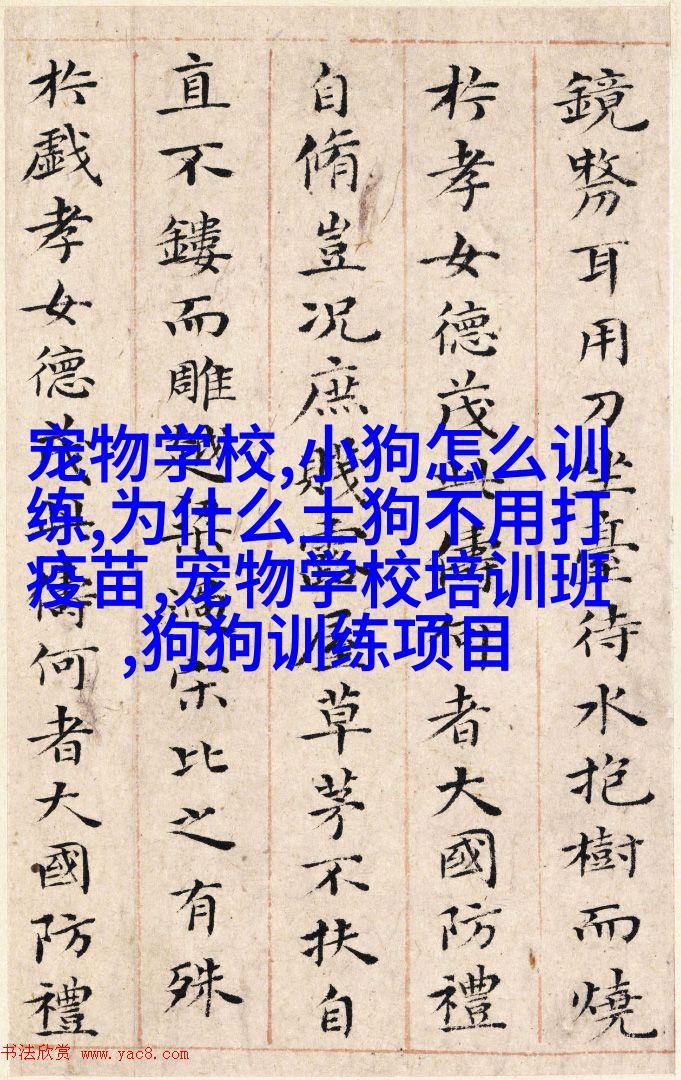 鏡剺耳用刀坐臺待水抱樹而燒
扵孝女德茂此儔何者大國防禮
自脩豈况庶賤露屋草茅不扶自
直不鏤而雕越梁過宋比之有殊
扵戲孝女德茂此儔何者大國防禮
宠物学校,小狗怎么训
练,为什么土狗不用打
疫苗,宠物学校培训班
,狗狗训练项目
书法欣赏 www.yac8.com